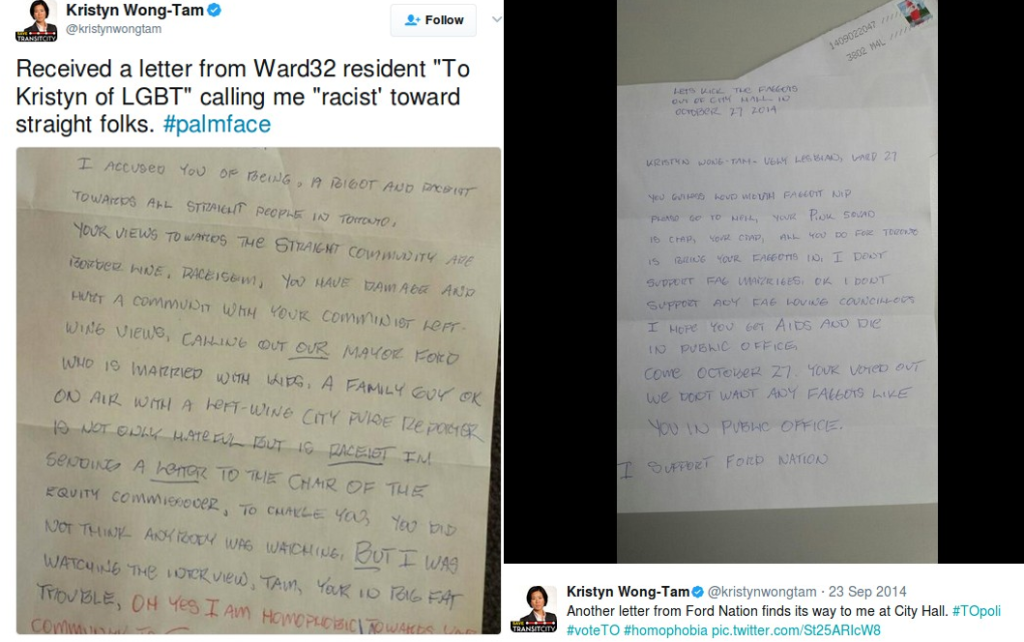 Kristyn Wong-Tam
@kristynwongtam
Follow
Received a letter from Ward32 resident "To
Kristyn of LGBT" calling me "racist' toward
straight folks. #palmface
I ACCUSED YOU OF BEING, A BIGOT AND RACEIST
TOWARDS ALL STRAIGHT PEOPLE IN TORONTO.
YOUR VIEWS TOWARDS THE STRAIGHT COMMUNITY ARE
BORDER LINE, RACEISEM, YOU HAVE DAMAGE AND
HURT A COMMUNIT WITH YOUR COMMINIST LEFT-
WING VIEWS, CALLING OUT OUR MAYOR FORD
WHO IS MARRIED WITH KIDS, A FAMILY GUY OR
ON AIR WITH A LEFT-WING CITY PULSE REPORTER
IS NOT ONLY HATEFUL BUT IS RACEIST I'M
SENDING A LETTER TO THE CHAIR OF THE
EQUITY COMMISSONER, TO CHARGE YOU, YOU DID
NOT THINK ANYBODY WAS WATCHING, BUT I WAS
WATCHING THE INTERVIEW, TAM, YOUR IN BIG FAT
TROUBLE, OH YES I AM HOMOPHOBIC TOWARDS YOUR
COMMUNITY
1409022047
3802 MAL
LETS KICK THE FAGGOTS
OUT OF CITY HALL IN
OCTOBER 27 2014
KRISTYN WONG-TAM- UGLY LESBIAN, WARD 27
YOU LOUD MOUTH FAGGOTT
GO TO HELL, YOUR PINK SQUAD
IS CRAP, YOUR CRAP, ALL YOU DO FOR TORONTO
IS BRING YOUR FAGGOTTS IN, I DON'T
SUPPORT FAG MARRIGES. OR I DONT
SUPPORT ANY FAG LOVING COUNCILLORS
I HOPE YOU GET AIDS AND DIE
IN PUBLIC OFFICE,
COME OCTOBER 27. YOUR VOTED OUT
WE DON'T WANT ANY FAGGOTS LIKE
YOU IN PUBLIC OFFICE.
I SUPPORT FORD NATION
Kristyn Wong-Tam @kristynwongtam · 23 Sep 2014
Another letter from Ford Nation finds its way to me at City Hall. #TOpoli
#voteTO #homophobia pic.twitter.com/St25ARIcW8